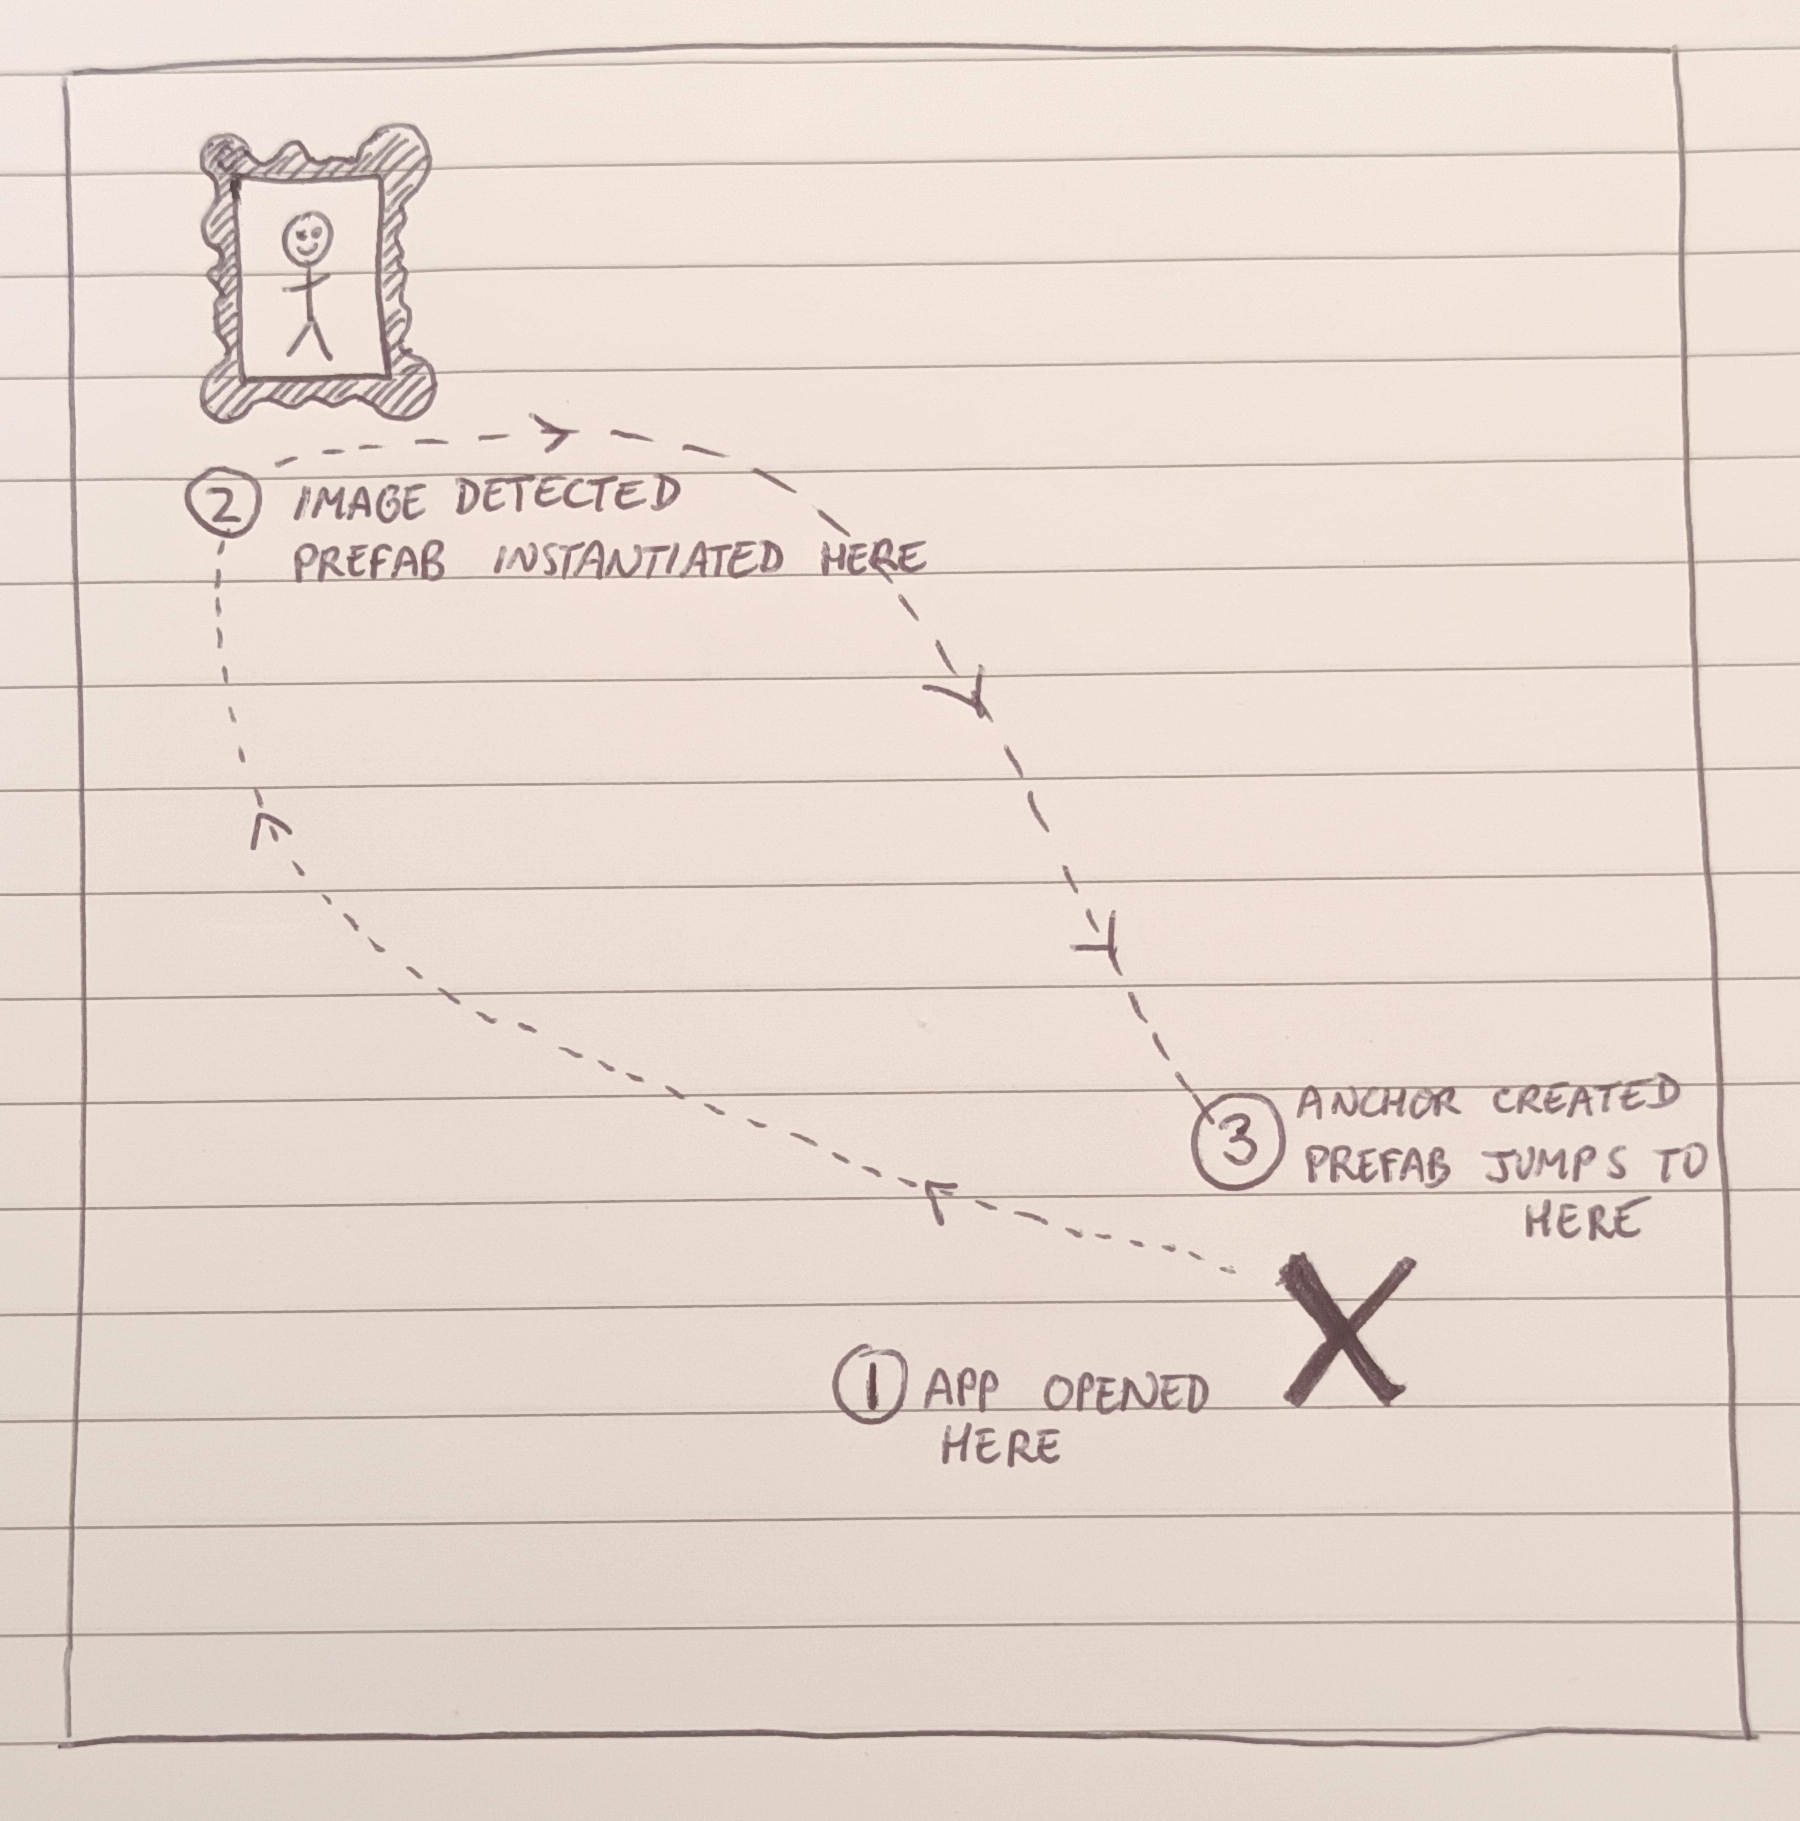 2 IMAGE DETECTED
PREFAB INSTANTIATED HERE
3 ANCHOR CREATED
PREFAB JUMPS TO
HERE
1 APP OPENED
HERE